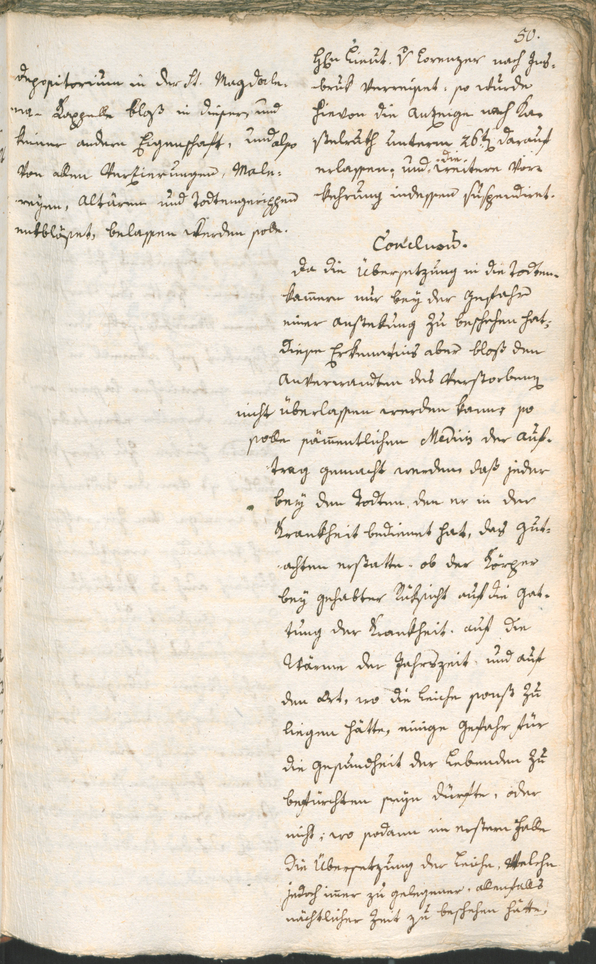 50.
depositorium in der St. Magdale-
na-Kappelle bloß in dieser, und
keiner andern Eigenschaft, und also
von allen Verzierungen, Male-
reyen, Altären und Todtengerippen
entblößet, belassen werden solle.
Hrn Lieut. v Lorenzer nach Ins-
bruk verreiset, so wurde
hievon die Anzeige nach Ka-
stelruth unterm 26t darauf
erlassen, und die weitere Vor-
kehrung indessen suspendiret.
Conclusum.
Da die Übersetzung in die Todten-
kammern nur bey der Gefahr
einer Anstekung zu beschehen hat,
diese Erkenntnis aber bloß den
Anverwandten des Verstorbenen
nicht überlassen werden kann, so
solle sämmentlichen Medicis der Auf-
trag gemacht werden, daß jeder
bey dem Todten, den er in der
Krankheit bedienet hat, das Gut-
achten erstatte, ob der Körper
bey gehabter Rüksicht auf die Gat-
tung der Krankheit, auf die
Wärme der Jahrszeit, und auf
den Ort, wo die Leiche sonst zu
liegen hätte, einige Gefahr für
die Gesundheit der Lebenden zu
befürchten seyn dürfte, oder
nicht; wo sodann im erstern Falle
die Übersetzung der Leiche, welche
jedoch immer zu gelegener, allenfalls
nächtlicher Zeit zu beschehen hätte,